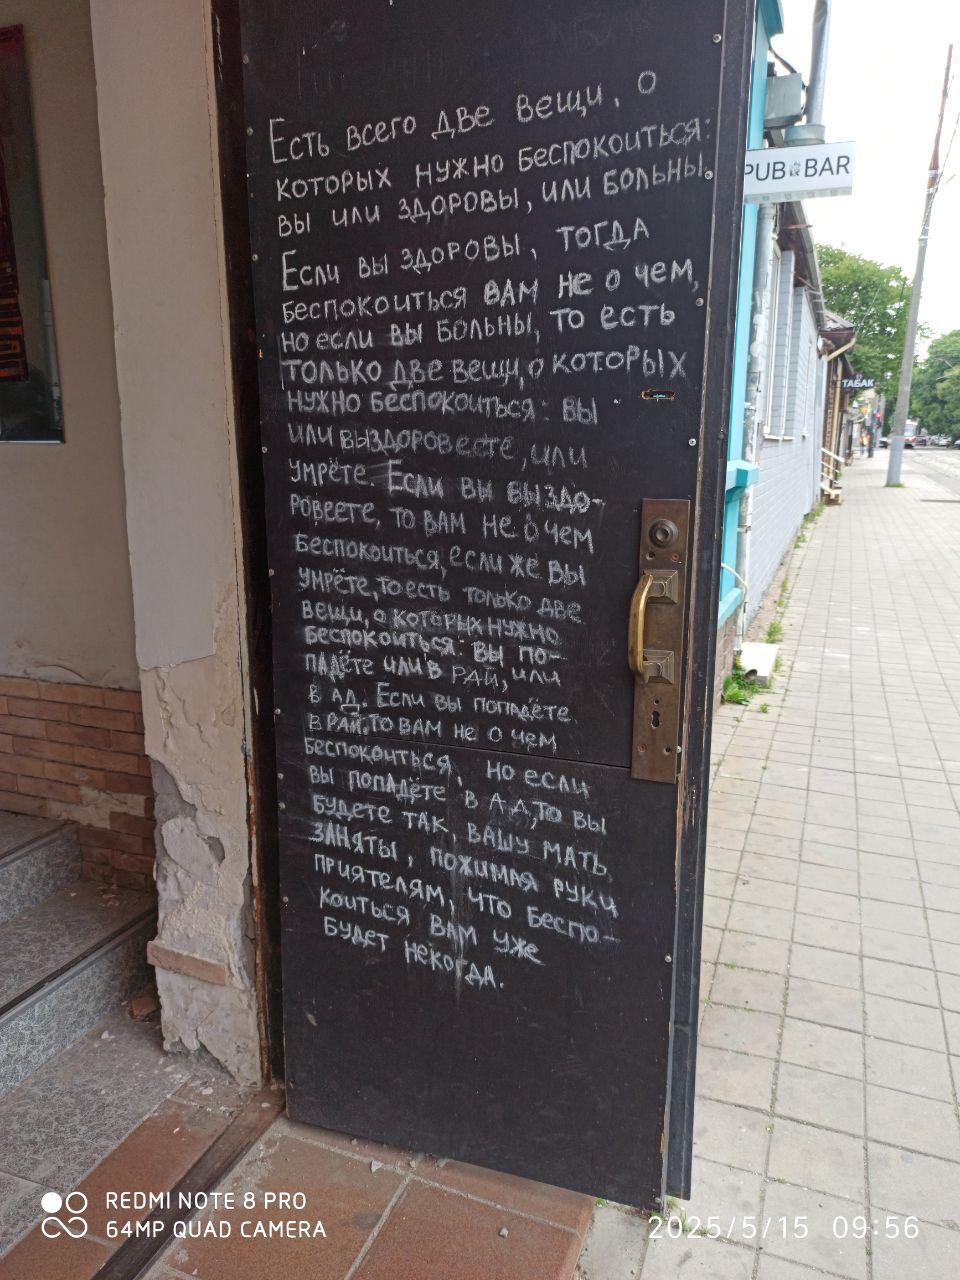 Есть всего две вещи, о
которых нужно беспокоиться:
вы или здоровы, или больны.
Если вы здоровы, тогда
беспокоиться вам не о чем,
но если вы больны, то есть
только две вещи, о которых
нужно беспокоиться: вы
или выздоровеете, или
умрёте. Если вы выздо-
ровеете, то вам не о чем
беспокоиться, если же вы
умрёте, то есть только две
вещи, о которых нужно
беспокоиться: вы по-
падёте или в рай, или
в ад. Если вы попадёте
в рай, то вам не о чем
беспокоиться, но если
вы попадёте в ад, то вы
будете так, вашу мать,
заняты, пожимая руки
приятелям, что беспо-
коиться вам уже
будет некогда.
PUB BAR
ТАБАК
REDMI NOTE 8 PRO
64MP QUAD CAMERA
2025/5/15 09:56